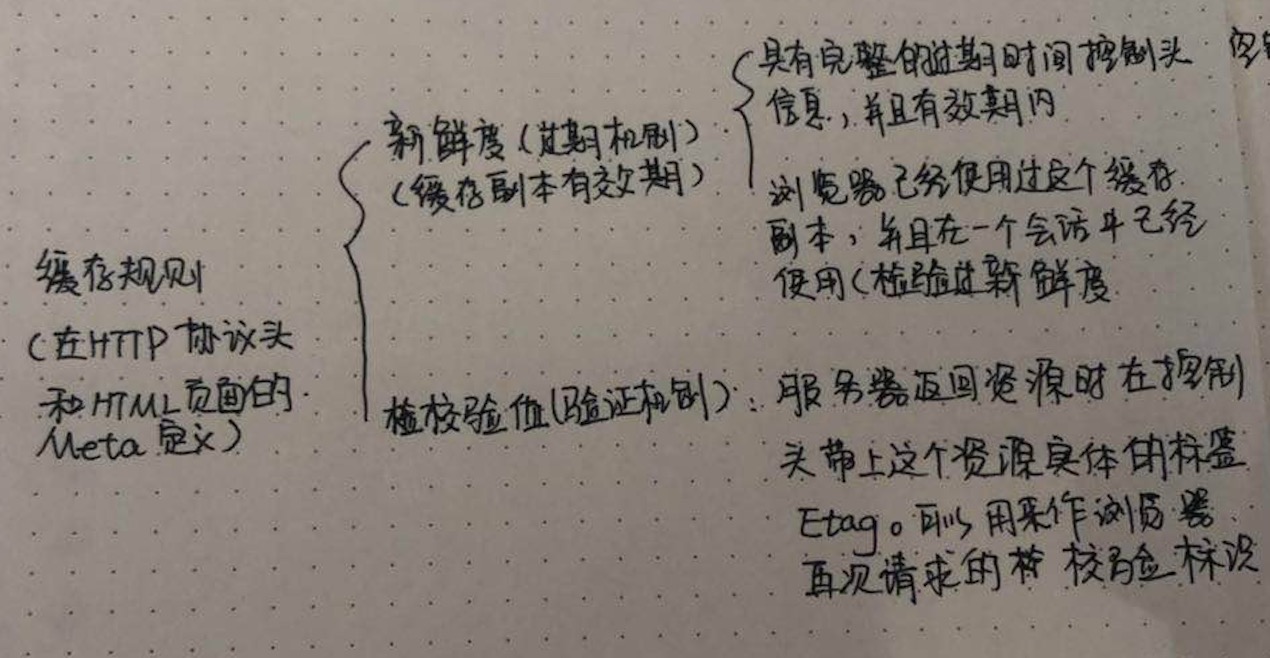 缓存规则
(在HTTP协议头
和HTML页面的
Meta定义)
新鲜度(过期机制)
(缓存副本有效期)
具有完整的过期时间控制头
信息,并且有效期内
浏览器已经使用过这个缓存
副本,并且在一个会话中已经
使用(检验过新鲜度
检校验值(验证机制):服务器返回资源时在控制
头带上这个资源实体的标签
Etag。可以用来作浏览器
再次请求的 校验标识